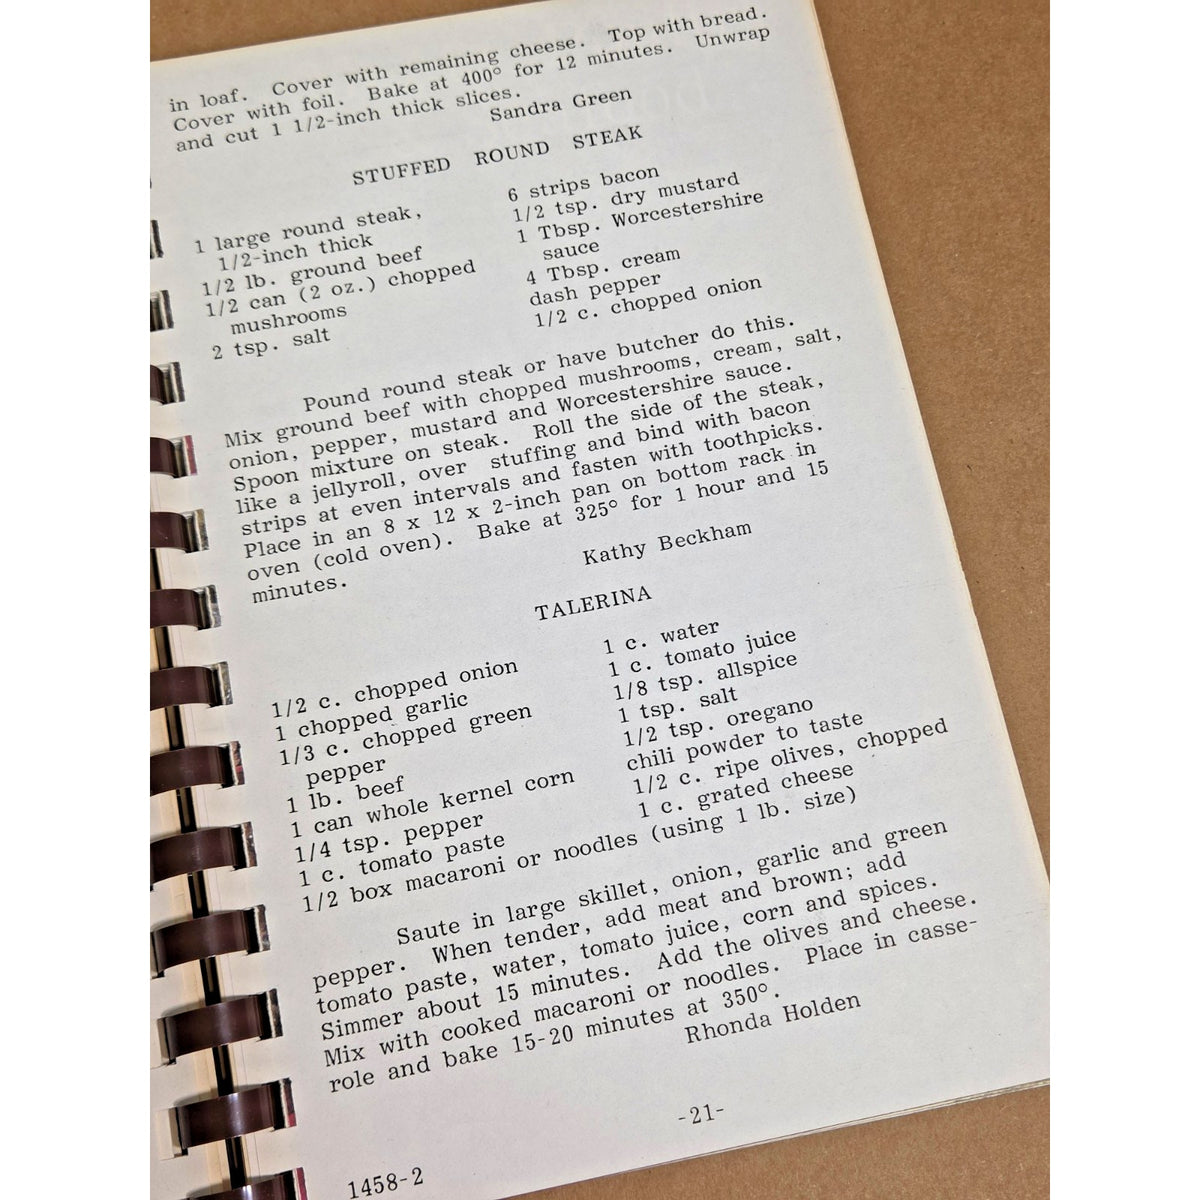 in loaf. Cover with remaining cheese. Top with bread.
Cover with foil. Bake at 400° for 12 minutes. Unwrap
and cut 1 1/2-inch thick slices.
Sandra Green
STUFFED ROUND STEAK
1 large round steak,
1/2-inch thick
1/2 lb. ground beef
1/2 can (2 oz.) chopped
mushrooms
2 tsp. salt
6 strips bacon
1/2 tsp. dry mustard
1 Tbsp. Worcestershire
sauce
4 Tbsp. cream
dash pepper
1/2 c. chopped onion
Pound round steak or have butcher do this.
Mix ground beef with chopped mushrooms, cream, salt,
onion, pepper, mustard and Worcestershire sauce.
Spoon mixture on steak. Roll the side of the steak,
like a jellyroll, over stuffing and bind with bacon
strips at even intervals and fasten with toothpicks.
Place in an 8 x 12 x 2-inch pan on bottom rack in
oven (cold oven). Bake at 325° for 1 hour and 15
minutes.
Kathy Beckham
TALERINA
1/2 c. chopped onion
1 chopped garlic
1/3 c. chopped green
pepper
1 lb. beef
1 can whole kernel corn
1/4 tsp. pepper
1 c. tomato paste
1 c. water
1 c. tomato juice
1/8 tsp. allspice
1 tsp. salt
1/2 tsp. oregano
chili powder to taste
1/2 c. ripe olives, chopped
1 c. grated cheese
1/2 box macaroni or noodles (using 1 lb. size)
Saute in large skillet, onion, garlic and green
pepper. When tender, add meat and brown; add
tomato paste, water, tomato juice, corn and spices.
Simmer about 15 minutes. Add the olives and cheese.
Mix with cooked macaroni or noodles. Place in casse-
role and bake 15-20 minutes at 350°.
Rhonda Holden
-21-
1458-2